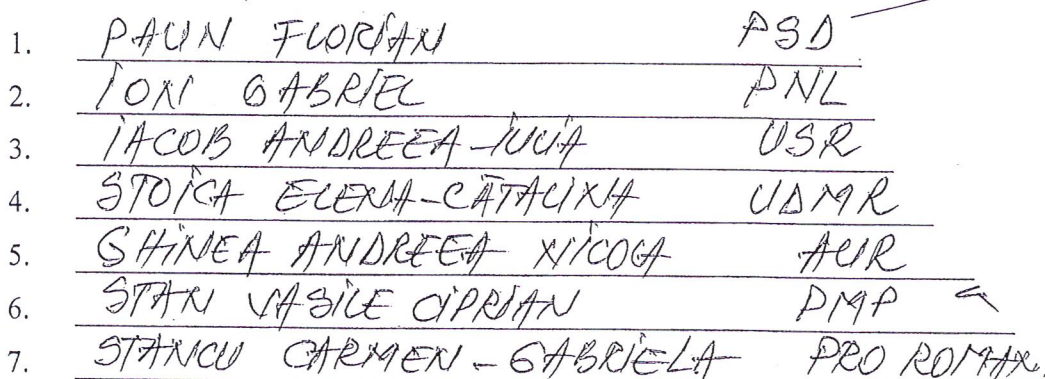 1. PAUN FLORIAN PSD
2. ION GABRIEL PNL
3. IACOB ANDREEA-IULIA USR
4. STOICA ELENA-CĂTALINA UDMR
5. GHINEA ANDREEA NICOLA AUR
6. STAN VASILE CIPRIAN PMP
7. STANCU CARMEN-GABRIELA PRO ROMAN.